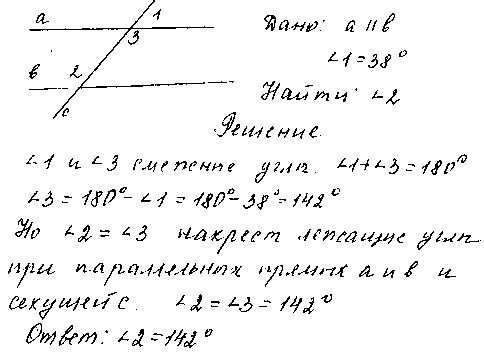 a
1
Дано: a || в
3
∠1 = 38°
в
2
Найти: ∠2
c
Решение
∠1 и ∠3 смежные углы. ∠1+∠3 = 180°
∠3 = 180° - ∠1 = 180° - 38° = 142°
Но ∠2 = ∠3 накрест лежащие углы
при параллельных прямых a и в и
секущей c. ∠2 = ∠3 = 142°
Ответ: ∠2 = 142°